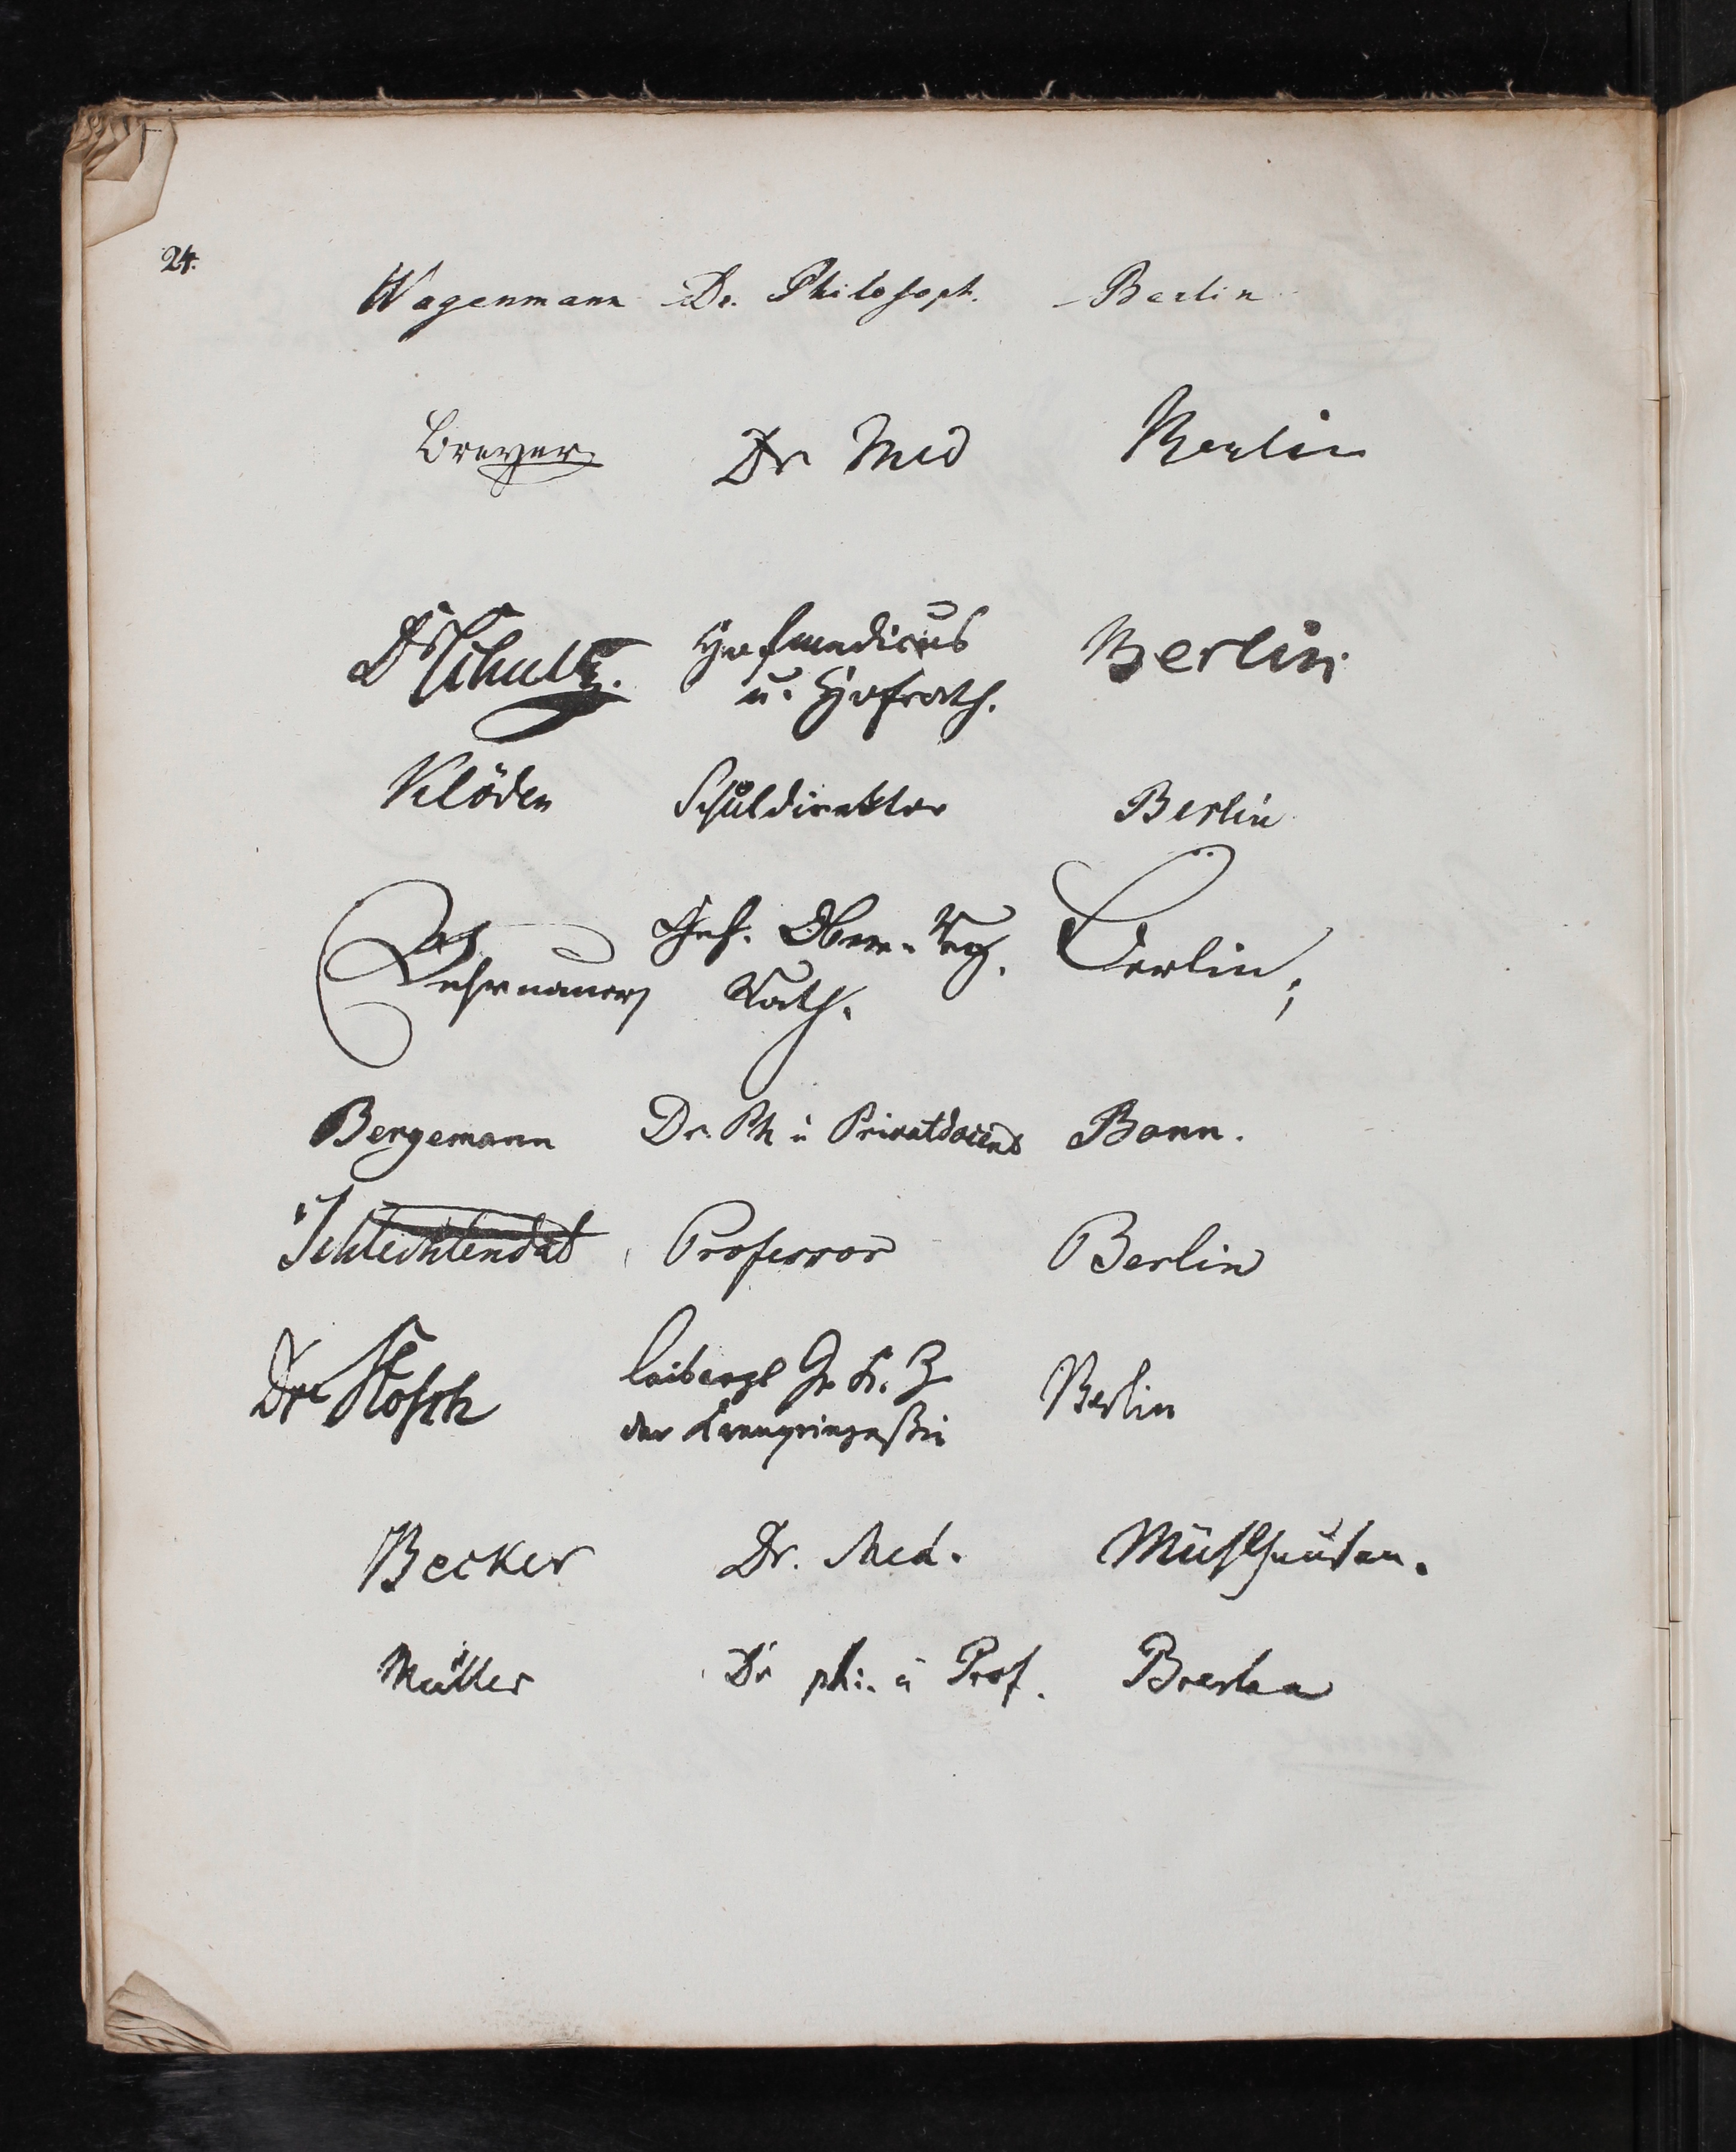 24.
Wagenmann Dr. Philosoph. Berlin
Breyer Dr Med Berlin
Dr Schultz. Hofmedicus Berlin
u. Hofrath.
Klöden Schuldirektor Berlin
Geh. Ober-Reg. Berlin,
Behrnauer Rath.
Bergemann Dr. Ph u Privatdocent Bonn.
Schlechtendal Professor Berlin
Dr Stosch Leibarzt Ihr K. H. Berlin
der Kronprinzeßin
Becker Dr. Med. Mühlhausen.
Müller Dr phi. u Prof. Breslau